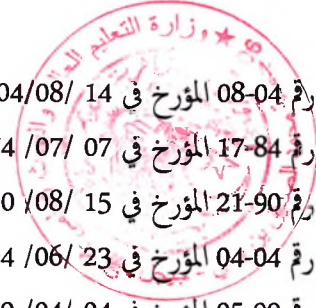 وزارة التعليم العا
رقم 04-08 المؤرخ في 14 /04/08
رقم 84-17 المؤرخ في 07 /07/ 4
رقم 90-21 المؤرخ في 15 /08/ 0
رقم 04-04 المؤرخ في 23 /06/ 4